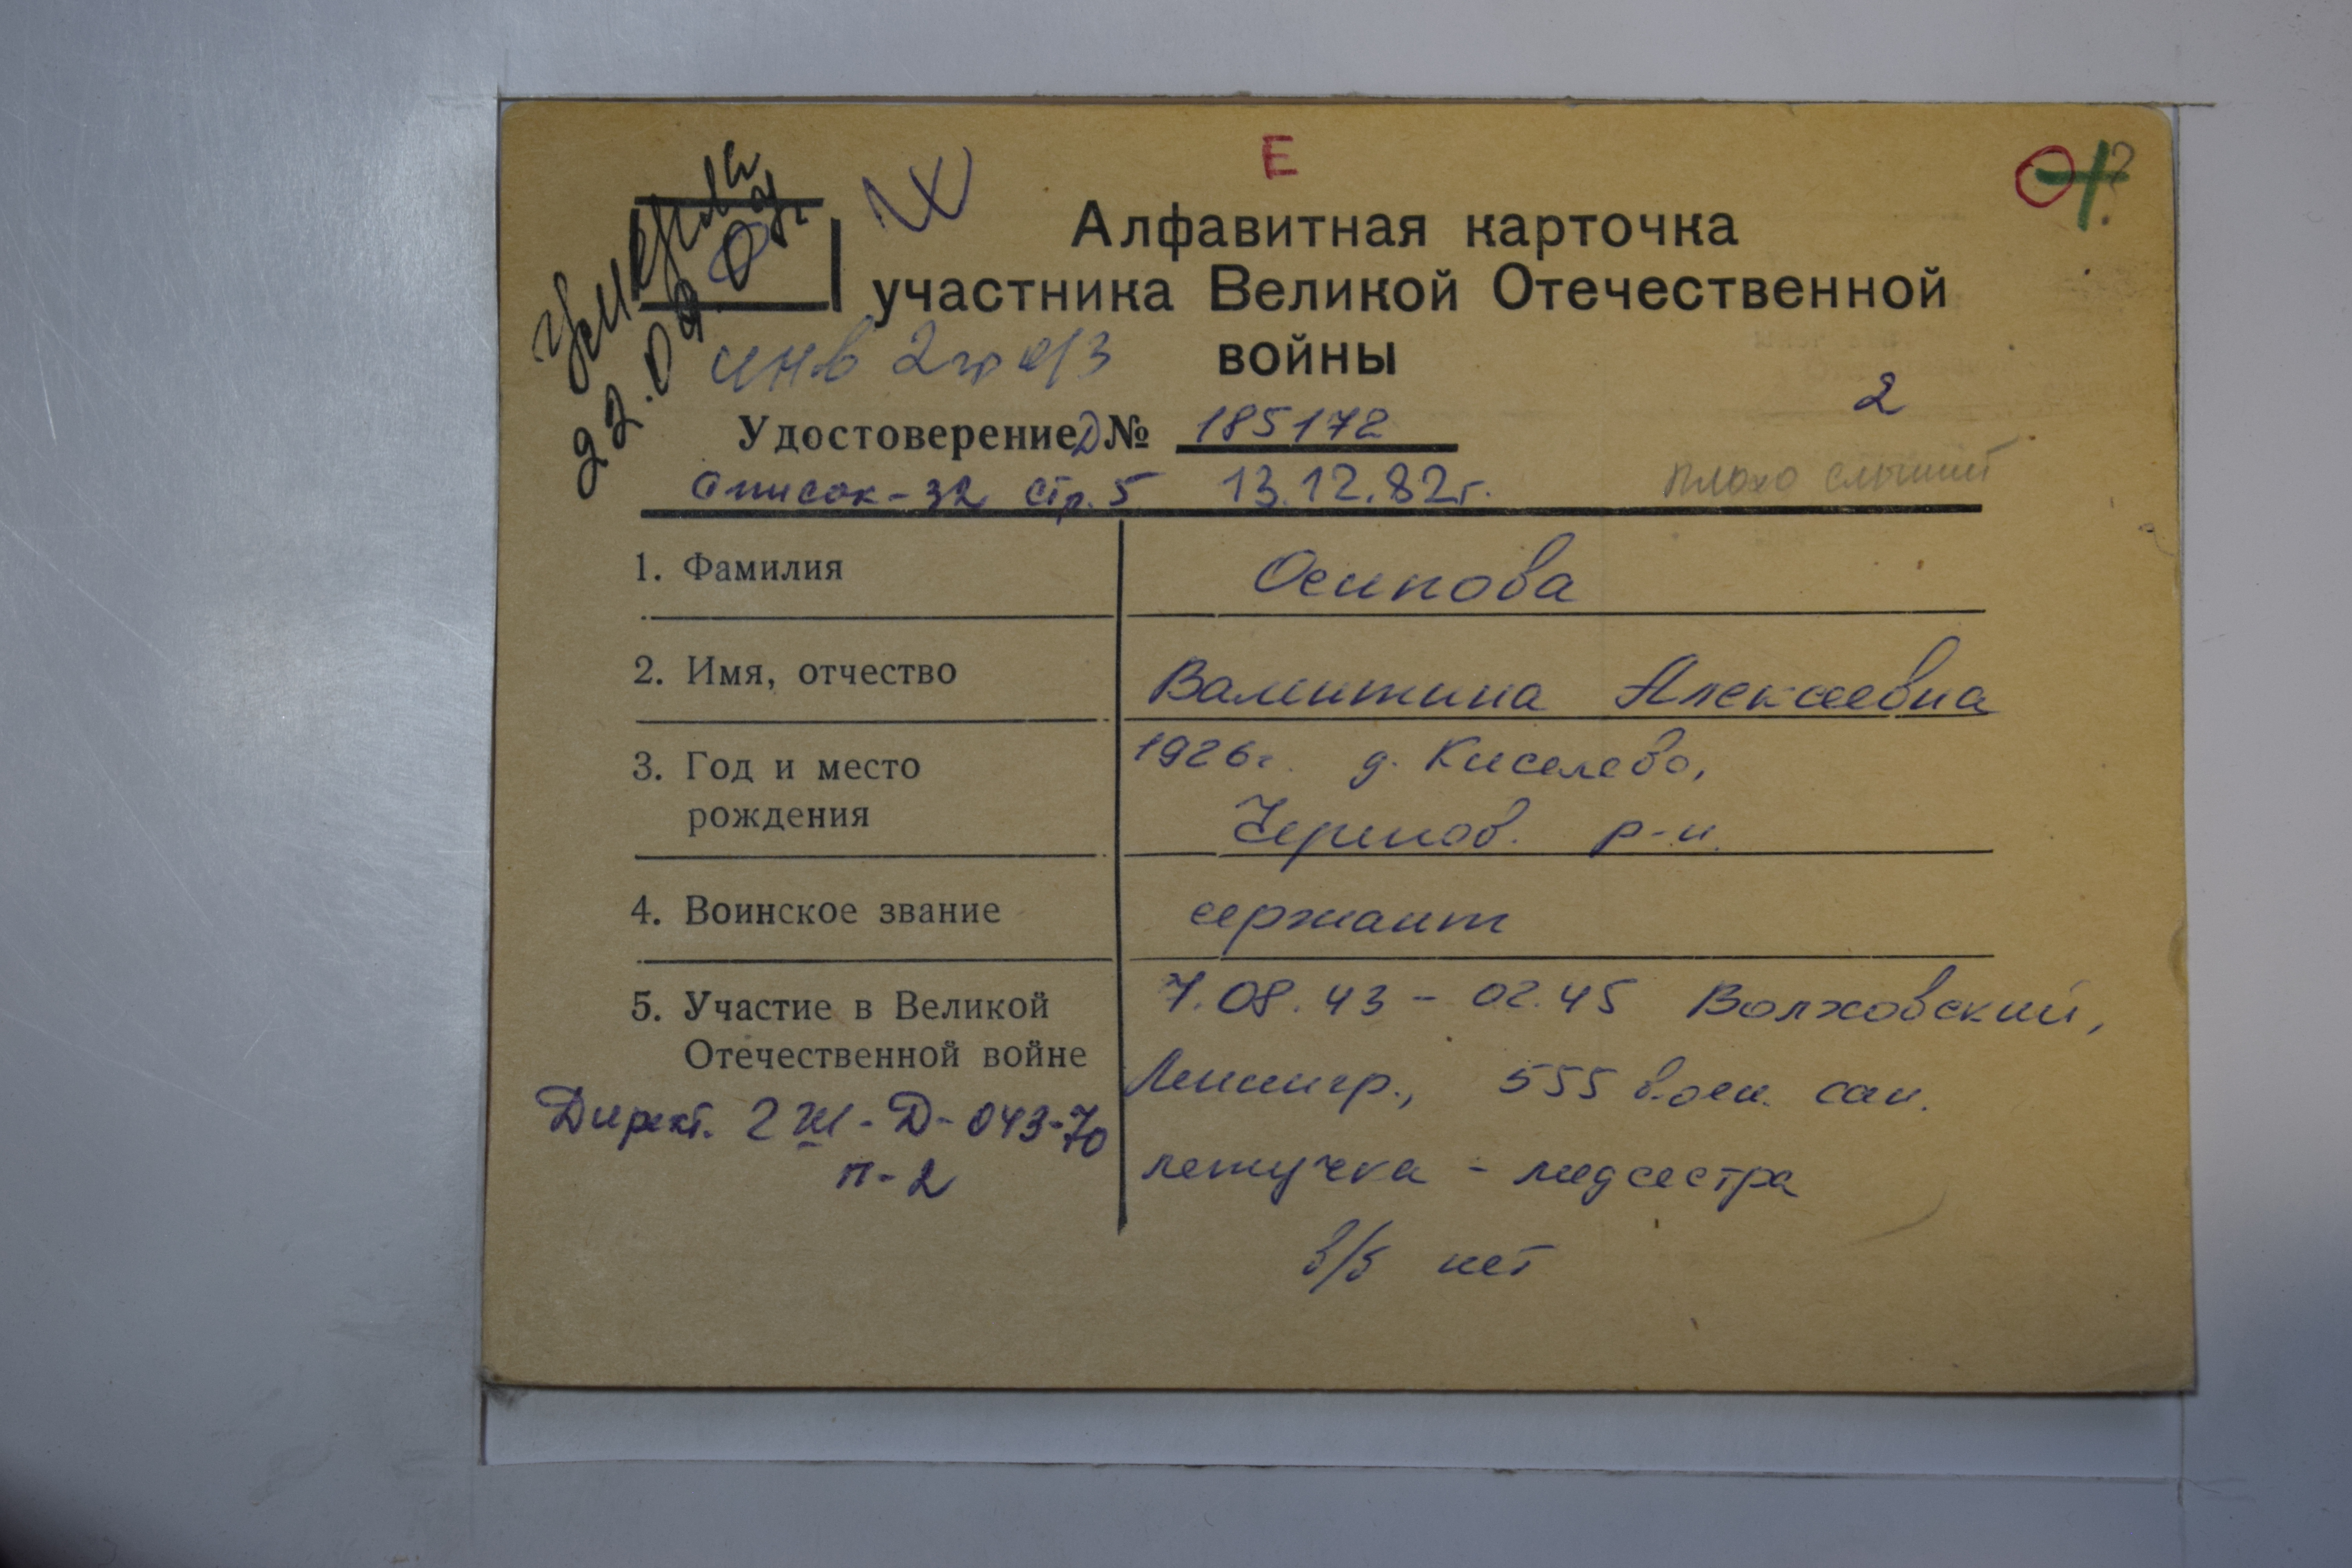 Е
Алфавитная карточка
участника Великой Отечественной
войны
умерла
22.09.
инв 2гр
2
Удостоверение Д № 185172
список-32 стр. 5 13.12.82г.
плохо слышит
1. Фамилия Осипова
2. Имя, отчество Валентина Алексеевна
3. Год и место 1926г. д. Киселево,
рождения Черепов. р-н.
4. Воинское звание сержант
5. Участие в Великой 7.08.43 - 02.45 Волховский,
Отечественной войне Ленингр., 555 воен. сан.
Директ. Д-043-70
п-2
летучка - медсестра
в/б нет